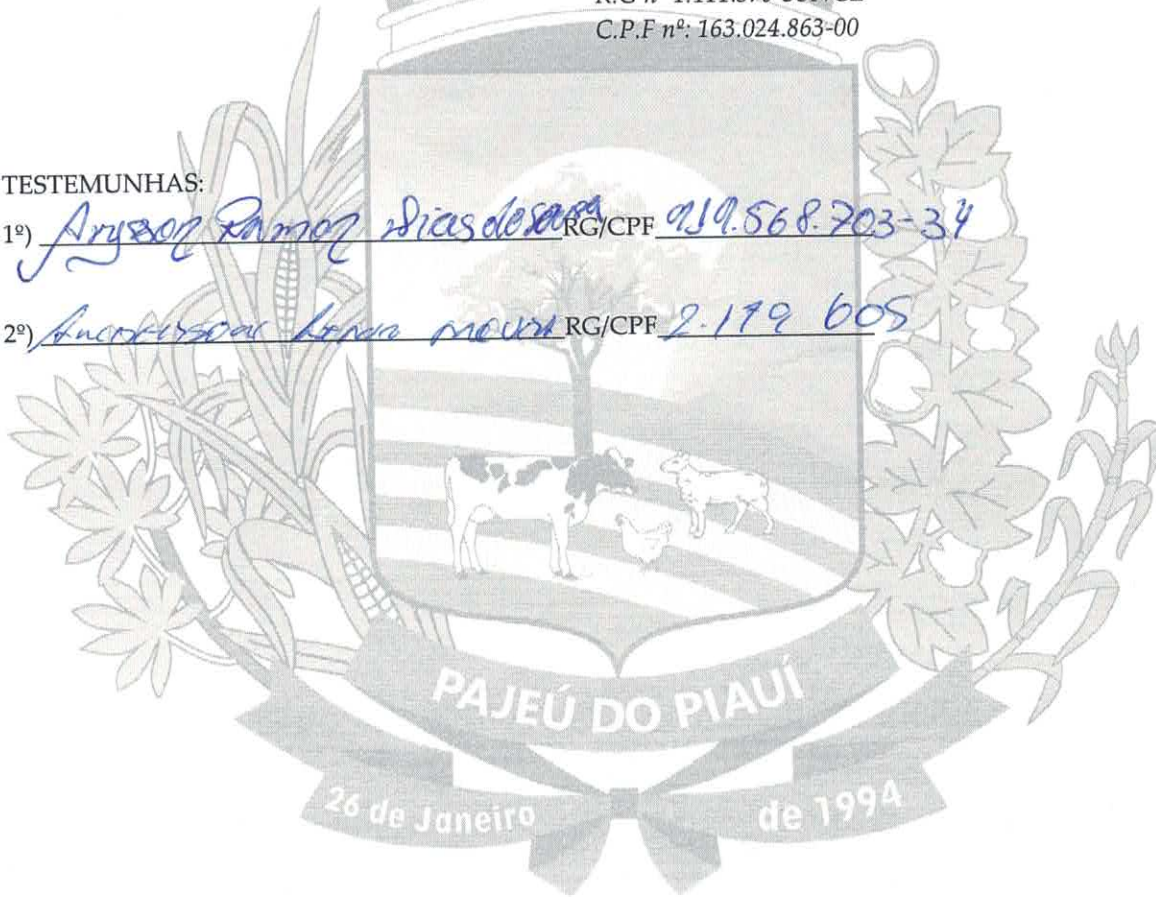 C.P.F nº: 163.024.863-00
TESTEMUNHAS:
1º) Arysson Ramon Dias de Sousa RG/CPF 919.568.703-34
2º) RG/CPF 2.179 605
PAJEÚ DO PIAUÍ
26 de Janeiro de 1994